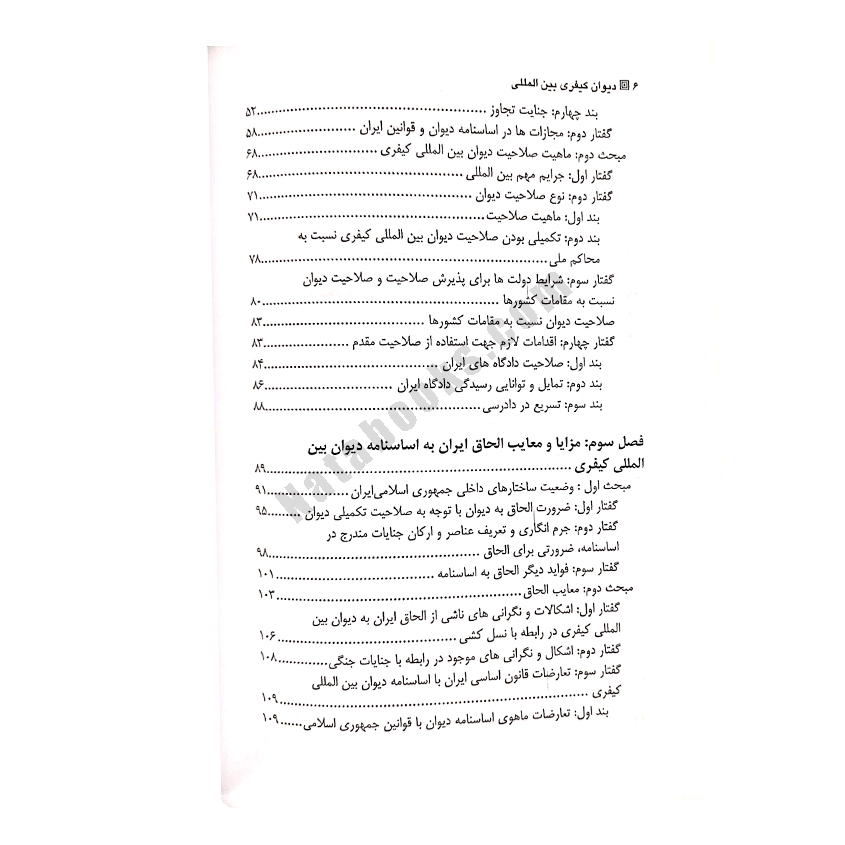 ۶ 回 دیوان کیفری بین المللی
بند چهارم: جنایت تجاوز ..........۵۲
گفتار دوم: مجازات ها در اساسنامه دیوان و قوانین ایران ..........۵۸
مبحث دوم: ماهیت صلاحیت دیوان بین المللی کیفری ..........۶۸
گفتار اول: جرایم مهم بین المللی ..........۶۸
گفتار دوم: نوع صلاحیت دیوان ..........۷۱
بند اول: ماهیت صلاحیت ..........۷۱
بند دوم: تکمیلی بودن صلاحیت دیوان بین المللی کیفری نسبت به
محاکم ملی ..........۷۸
گفتار سوم: شرایط دولت ها برای پذیرش صلاحیت و صلاحیت دیوان
نسبت به مقامات کشورها ..........۸۰
صلاحیت دیوان نسبت به مقامات کشورها ..........۸۳
گفتار چهارم: اقدامات لازم جهت استفاده از صلاحیت مقدم ..........۸۳
بند اول: صلاحیت دادگاه های ایران ..........۸۴
بند دوم: تمایل و توانایی رسیدگی دادگاه ایران ..........۸۶
بند سوم: تسریع در دادرسی ..........۸۸
فصل سوم: مزایا و معایب الحاق ایران به اساسنامه دیوان بین
المللی کیفری ..........۸۹
مبحث اول : وضعیت ساختارهای داخلی جمهوری اسلامی‌ایران ..........۹۱
گفتار اول: ضرورت الحاق به دیوان با توجه به صلاحیت تکمیلی دیوان ..........۹۵
گفتار دوم: جرم انگاری و تعریف عناصر و ارکان جنایات مندرج در
اساسنامه، ضرورتی برای الحاق ..........۹۸
گفتار سوم: فواید دیگر الحاق به اساسنامه ..........۱۰۱
مبحث دوم: معایب الحاق ..........۱۰۳
گفتار اول: اشکالات و نگرانی های ناشی از الحاق ایران به دیوان بین
المللی کیفری در رابطه با نسل کشی ..........۱۰۶
گفتار دوم: اشکال و نگرانی های موجود در رابطه با جنایات جنگی ..........۱۰۸
گفتار سوم: تعارضات قانون اساسی ایران با اساسنامه دیوان بین المللی
کیفری ..........۱۰۹
بند اول: تعارضات ماهوی اساسنامه دیوان با قوانین جمهوری اسلامی ......۱۰۹
Natabooks.com